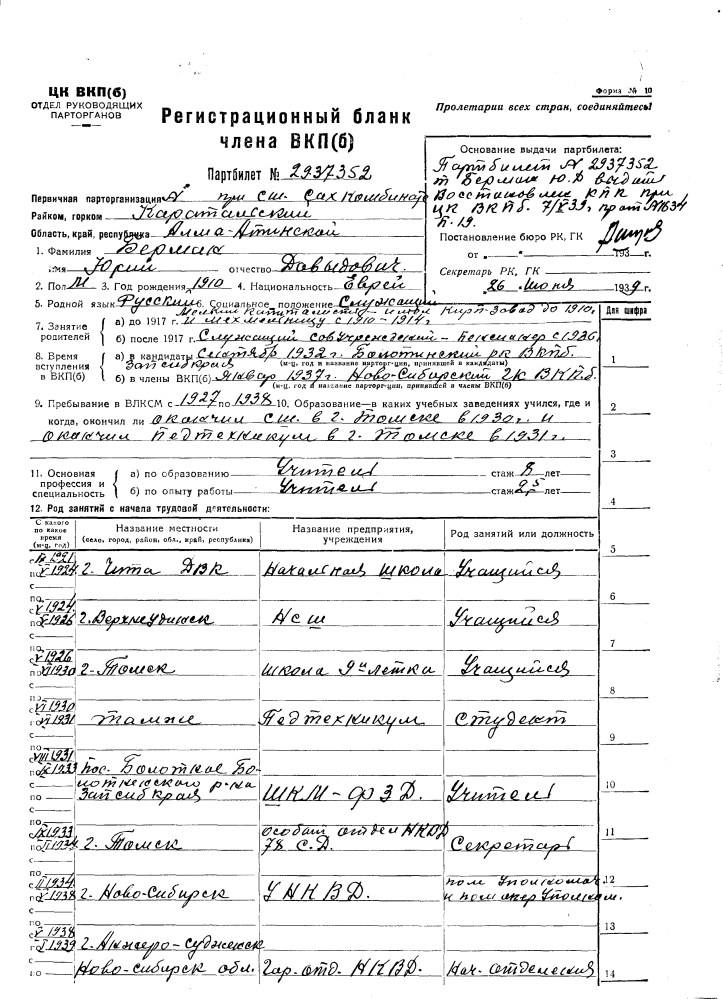 ЦК ВКП(б)
ОТДЕЛ РУКОВОДЯЩИХ
ПАРТОРГАНОВ
Форма № 10
Пролетарии всех стран, соединяйтесь!
Регистрационный бланк
члена ВКП(б)
Партбилет № 2937352
Основание выдачи партбилета:
Партбилет № 2937352
т Бермак Ю.Д выдат
Восстановлен КПК при
ЦК ВКПб. 7/V 39, прот №1634
п. 19.
Постановление бюро РК, ГК
от „ “ 193 г.
Секретарь РК, ГК
26 июня 1939 г.
Первичная парторганизация № при сш. Сахкомбината
Райком, горком Каратальский
Область, край, республика Алма-Атинской
1. Фамилия Бермак
имя Юрий отчество Давыдович.
2. Пол М 3. Год рождения 1910 4. Национальность Еврей
5. Родной язык Русский 6. Социальное положение Служащий
Для шифра
7. Занятие родителей
Мелкий капиталист имел кирп. завод до 1910г
а) до 1917 г. и мельницу с 1910 - 1914г
б) после 1917 г. Служащий совучреждений - Пенсионер с 1936
8. Время вступления в ВКП(б)
а) в кандидаты Сентябр 1932г. Болотнинский рк ВКПб.
Запсибкрая (м-ц, год и название парторг-ции, принявшей в кандидаты)
б) в члены ВКП(б) Январ 1937г. Ново-Сибирский ГК ВКПб.
(м-ц, год и название парторг-ции, принявшей в члены ВКП(б)
9. Пребывание в ВЛКСМ с 1927 по 1938 10. Образование—в каких учебных заведениях учился, где и
когда, окончил ли окончил сш. в г. Томске в 1930г. и
окончил Педтехникум в г. Томске в 1931г.
11. Основная профессия и специальность
а) по образованию Учитель стаж 8 лет
б) по опыту работы Учитель стаж 2,5 лет
12. Род занятий с начала трудовой деятельности:
С какого по какое время (м-ц, год)
Название местности (село, город, район, обл., край, республика)
Название предприятия, учреждения
Род занятий или должность
1921 по V 1924 г. Чита ДВК Начальная школа Учащийся
с V 1924 по V 1926 г. Верхнеудинск Нсш Учащийся
с V 1926 по VI 1930 г. Томск школа 9и летка Учащийся
с VI 1930 по VI 1931 там же Педтехникум Студент
с VIII 1931 по IX 1933 пос. Болотное Болотнинского р-на Запсибкрая ШКМ - ФЗД. Учитель
с IX 1933 по II 1934 г. Томск Особый отдел НКВД 78 С.Д. Секретарь
с II 1934 по V 1938 г. Ново-Сибирск УНКВД. пом уполномоч и пом опер Уполном.
с V 1938 по I 1939 г. Анжеро-Судженск Ново-Сибирск обл. Гор. отд. НКВД. Нач. отделения
1
2
3
4
5
6
7
8
9
10
11
12
13
14